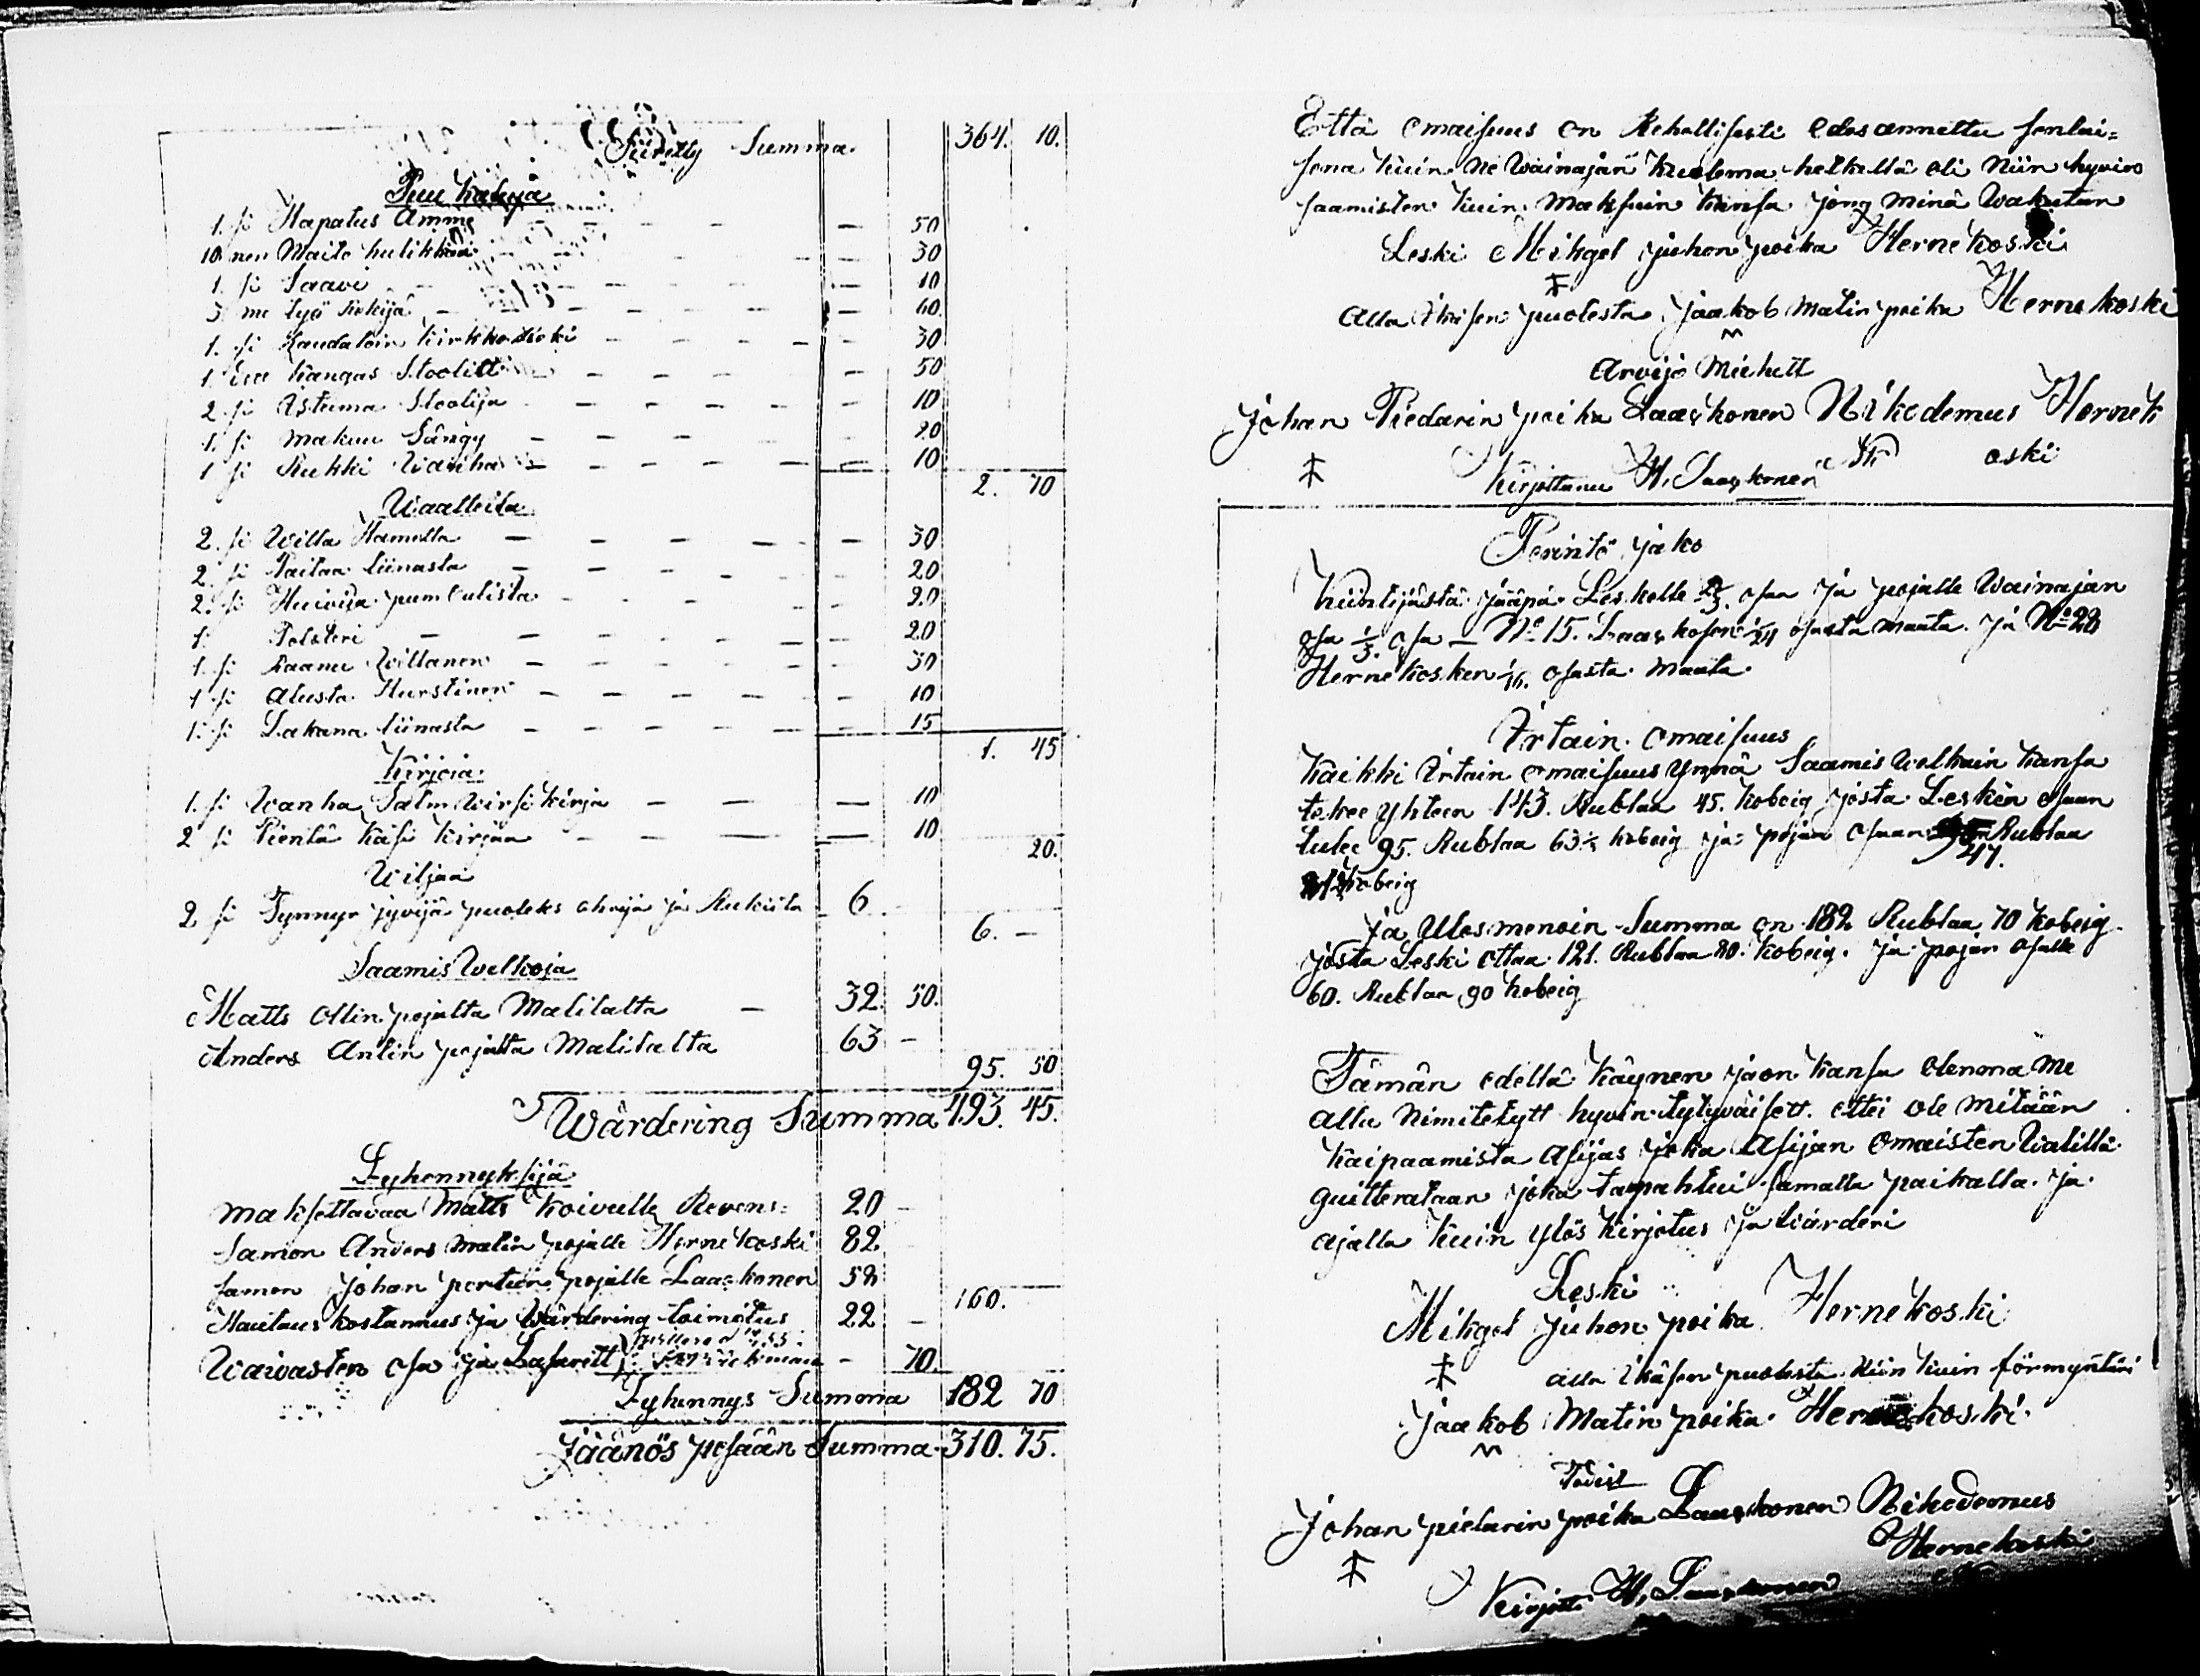 Siiretty Summa 364. 10.
Puu Kaluja
1. si Hapatus Amme — 50
10 nen Maito hulikkaa — 30
1. si Saavi — 10
3 me työ — 60
1. si kirkko — 30
1. Kangas Stoolit — 50
2. si Istuma Stoolija — 10
1. si makuu Sängy — 20
1 si Rukki Wanha — 10
2. 70
Waatteita
2. si Willa Hametta — 30
2. si Paitaa liinasta — 20
2. si Huivija pumbulista — 20
1. Polsteri — 20
1. si Raanu Willanen — 30
1 si alusta Hurstinen — 10
1. si Lakana liinasta — 15
1. 45
Kirjoia
1. si Wanha Salm Wirsi kirja — 10
2 si Pientä Käsi Kirjaa — 10
20.
Wiljaa
2 si Tynnyr jyvijä puoleks ohrija ja Rukiita 6
6. —
Saamis Welkoja
Matts Ollin pojalta Malilalta — 32. 50.
Anders Antin pojalta Malilalta 63 —
95. 50
Wärdering Summa 493. 45.
Lyhennyksijä
maksettavaa Matts Koivulle Revens: 20 —
Samon Anders Matin pojalle Hernekoski 82.
samon Johan pertin pojalle Laaskonen 58
160.
Hautaus kostannus ja Wärdering toimitus 22 —
Waivasten osa ja Lasarett — 70.
Lyhennys Summa 182 70
Jäänös pesään Summa 310. 75.
Että omaisuus on Rehellisesti edes annettu senlai=
sena kuin ne Wainajan kuolema hetkellä oli Niin hyvin
saamisten kuin maksuin kansa jong minä Wakutan
Leski Mikgel juhon poika Hernekoski
alla ikäsen puolesta Jaakob Matin poika Hernekoski
Arvijo Miehett
Johan Piedarin poika Laaskonen Nikodemus Hernek
oski
Kirjottanu H. Laaskonen
Perintö jako
Kiintijästä jääpi Leskelle 2/3. osa ja pojalle Wainajan
osa 1/3. osa — No 15. Laaskosen 1/24 osasta maata. ja No 28
Hernekosken 1/16. osasta maata.
Irtain omaisuus
Kaikki irtain omaisuus ynnä Saamis Welkain kansa
tekee yhteen 143. Rublaa 45. kobeig josta Lesken osaan
tulee 95. Rublaa 63 1/2 kobeig ja pojan osaan Rublaa
47.
kobeig
Ja Ulosmenoin Summa on 182 Rublaa 70 kobeig
josta Leski ottaa 121. Rublaa 80. kobeig. ja pojan osalle
60. Rublaa 90 kobeig
Tämän edellä käynen jaon kansa olemma me
alla Nimitetytt hyvin tytyväisett. ettei ole mitään
kaipaamista Asijas joka Asijan omaisten Walillä
guitterataan joka tapahtui samalla paikalla. ja
ajalla kuin ylös kirjotus ja Wärderi
Leski
Mikgel juhon poika Hernekoski
alla ikäsen puolesta Niin kuin förmyntäri
Jaakob Matin poika Hernekoski.
Todist
Johan pietarin poika Laaskonen Nikodemus
Hernekoski
Kirjott H. Laaskonen